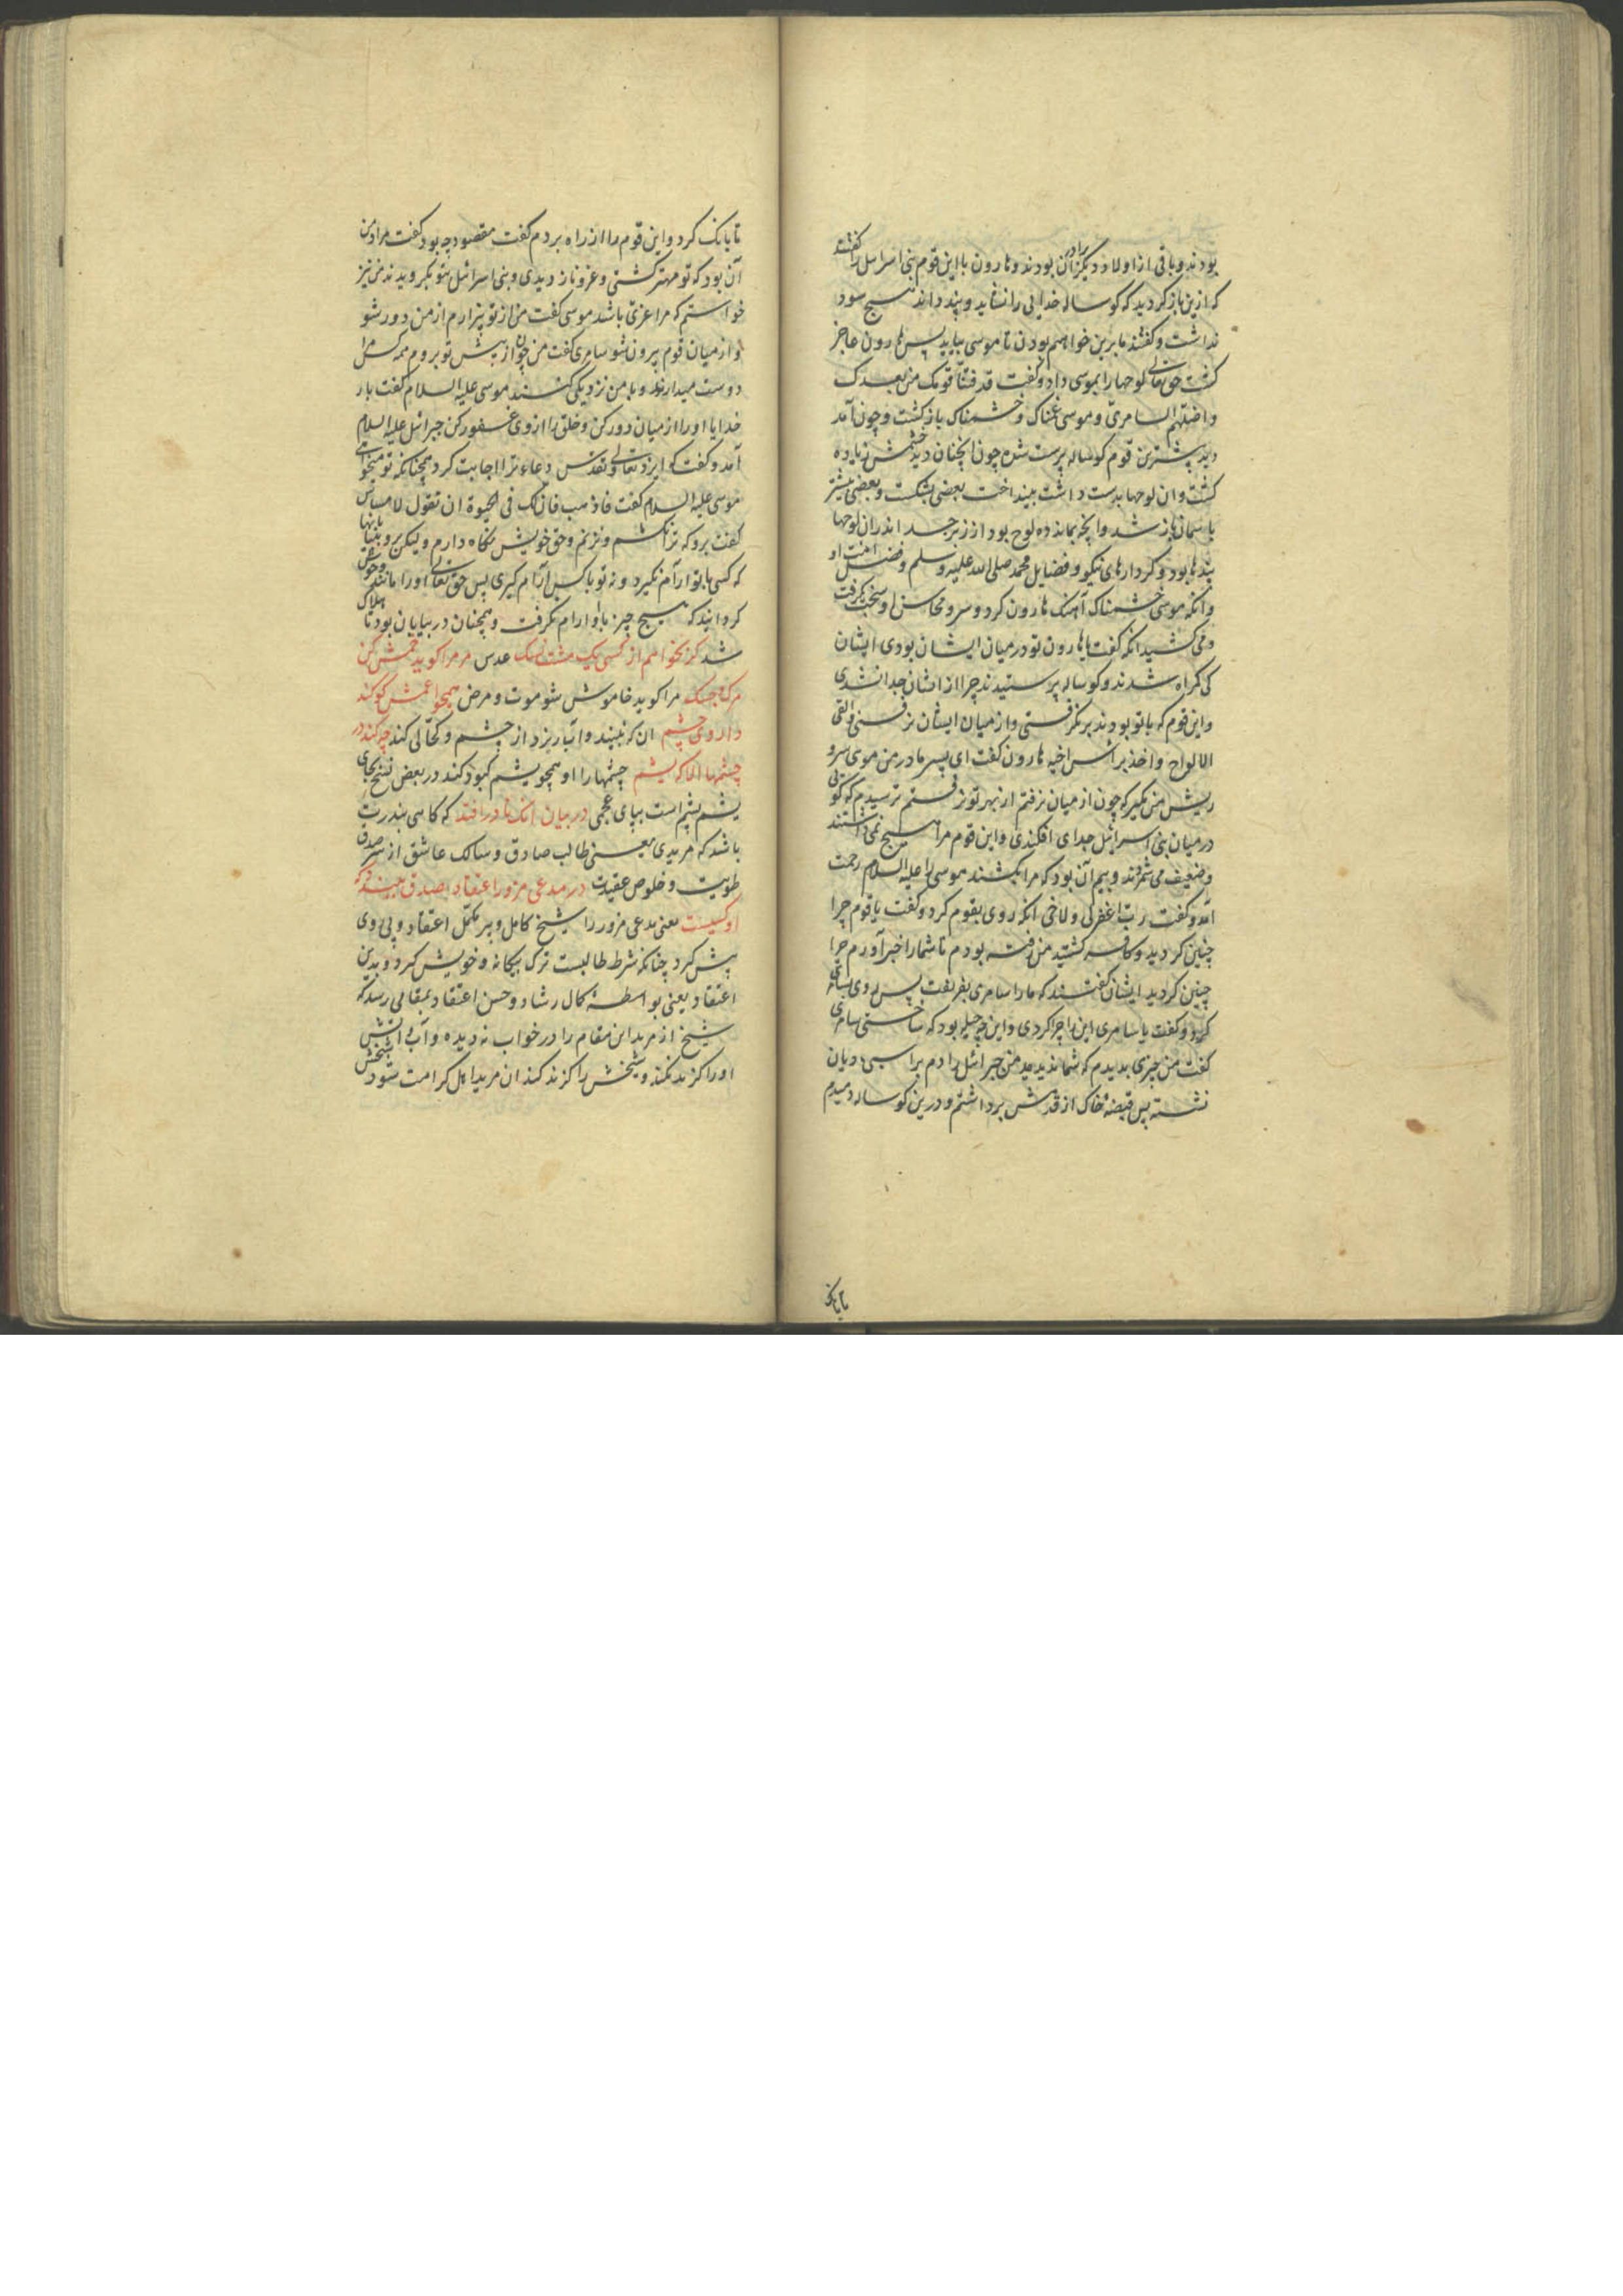 بودند و باقی از اولاد دیگر برادران بودند و هارون با این قوم بنی اسرائیل را گفتند
که ازین باز گردید که کوساله خدایی را نشاید و پند داند هیچ سود
نداشت و گفتند ما برین خواهیم بودن تا موسی بیاید پس هارون عاجز
گشت حق تعالی لوحها را بموسی داد و گفت قد فتنّا قومک من بعدک
و اضلّهم السامریّ و موسی غمناک و خشمناک باز گشت و چون آمد
دید بیشترین قوم کوساله پرست شده چون آنچنان دید خشمش زیاده
گشت و ان لوحها بدست داشت بینداخت بعضی بشکست و بعضی بیشتر
باسمان باز شد و آنچه بمانده لوح بود از زبرجد اندران لوحها
پندها بود و کردارهای نیکو و فضایل محمد صلی الله علیه وسلم و فضل امت او
وانکه موسی خشمناک آهنک هارون کرد و سر و محاسن او سخت بگرفت
و می کشید انکه گفت یا هارون تو در میان ایشان بودی ایشان
کی گمراه شدند و کوساله پرستیدند چرا از ایشان جدا نشدی
و این قوم که با تو بودند برنگرفتی و از میان ایشان نرفتی و القی
الالواح و اخذ براس اخیه هارون گفت ای پسر مادر من موی سر و
ریش من مگیر که چون از میان نرفتم از بهر تو نرفتم ترسیدم که گویی
در میان بنی اسرائیل جدای افکندی و این قوم مرا هیچ نمی داشتند
و ضعیف می شمردند و بیم آن بود که مرا بکشند موسی را علیه السلام رحمت
آمد و گفت ربّ اغفر لی و لاخی انکه روی بقوم کرد و گفت یا قوم چرا
چنین کردید و کافر گشتید من رفته بودم تا شما را خبر آورم چرا
چنین کردید ایشان گفتند که ما را سامری بفریفت پس روی بسامری
کرد و گفت یا سامری این را چرا کردی و این چه حیله بود که ساختی سامری
گفت من چیزی بدیدم که شما ندیدید من جبرائیل را دیدم بر اسپی مادیان
نشسته پس قبضه خاک از قدمش برداشتم و درین کوساله دمیدم
تا بانک
تا بانک کرد و این قوم را از راه بردم گفت مقصود چه بود گفت مراد من
آن بود که تو مهتر گشتی و عزّ و ناز دیدی و بنی اسرائیل بتو بگرویدند من نیز
خواستم که مرا عزّی باشد موسی گفت من از تو بیزارم از من دور شو
و از میان قوم بیرون شو سامری گفت من چون از پیش تو بروم همه کس مرا
دوست میدارند و با من نزدیکی کنند موسی علیه السلام گفت بار
خدایا او را از میان دور کن و خلق را از وی نفور کن جبرائیل علیه السلام
آمد و گفت که ایزد تعالی و تقدّس دعاء ترا اجابت کرد همچنانکه تو میخواهی
موسی علیه السلام گفت فاذهب فانّ لک فی الحیوة ان تقول لا مساس
گفت برو که ترا نکشم و نزنم و حق خویش نگاه دارم ولیکن برو به بیابانها
که کسی با تو آرام نگیرد و نه تو با کس آرام گیری پس حق تعالی او را مانند وحوش
گردانید که هیچ چیز با او ارام نگرفت و همچنان در بیابان بود تا هلاک
شد کز نخواهم از کسی یک مشت نسک عدس مر مرا گوید خمش کن
مرک و جسک مرا گوید خاموش شو موت و مرض همچو اعمش کو کند
داروی چشم ان که نبیند و آب ریزد از چشم و کحّالی کند چه کند در
چشمها الا که یشم چشمها را او همچو یشم کبود کند در بعض نسخ بجای
یشم پشم است ببای عجمی در بیان انک نادر افتد که کاسی بندرت
باشد که مریدی یعنی طالب صادق و سالک عاشق از سر صدق
طویت و خلوص عقیدت در مدعی مزوّر اعتقاد بصدق ببندد که
او کسیست یعنی مدعی مزوّر را شیخ کامل و پیر مکمّل اعتقاد و پی روی
پیش گیرد چنانکه شرط طالبست ترک بیگانه و خویش گیرد و بدین
اعتقاد یعنی بواسطهٔ کمال رشاد و حسن اعتقاد بمقامی رسد که
شیخ از مرید این مقام را در خواب ندیده و آب و آتش
او را گزند نکند و شیخش را گزند کند ان مرید اهل کرامت شود شیخش